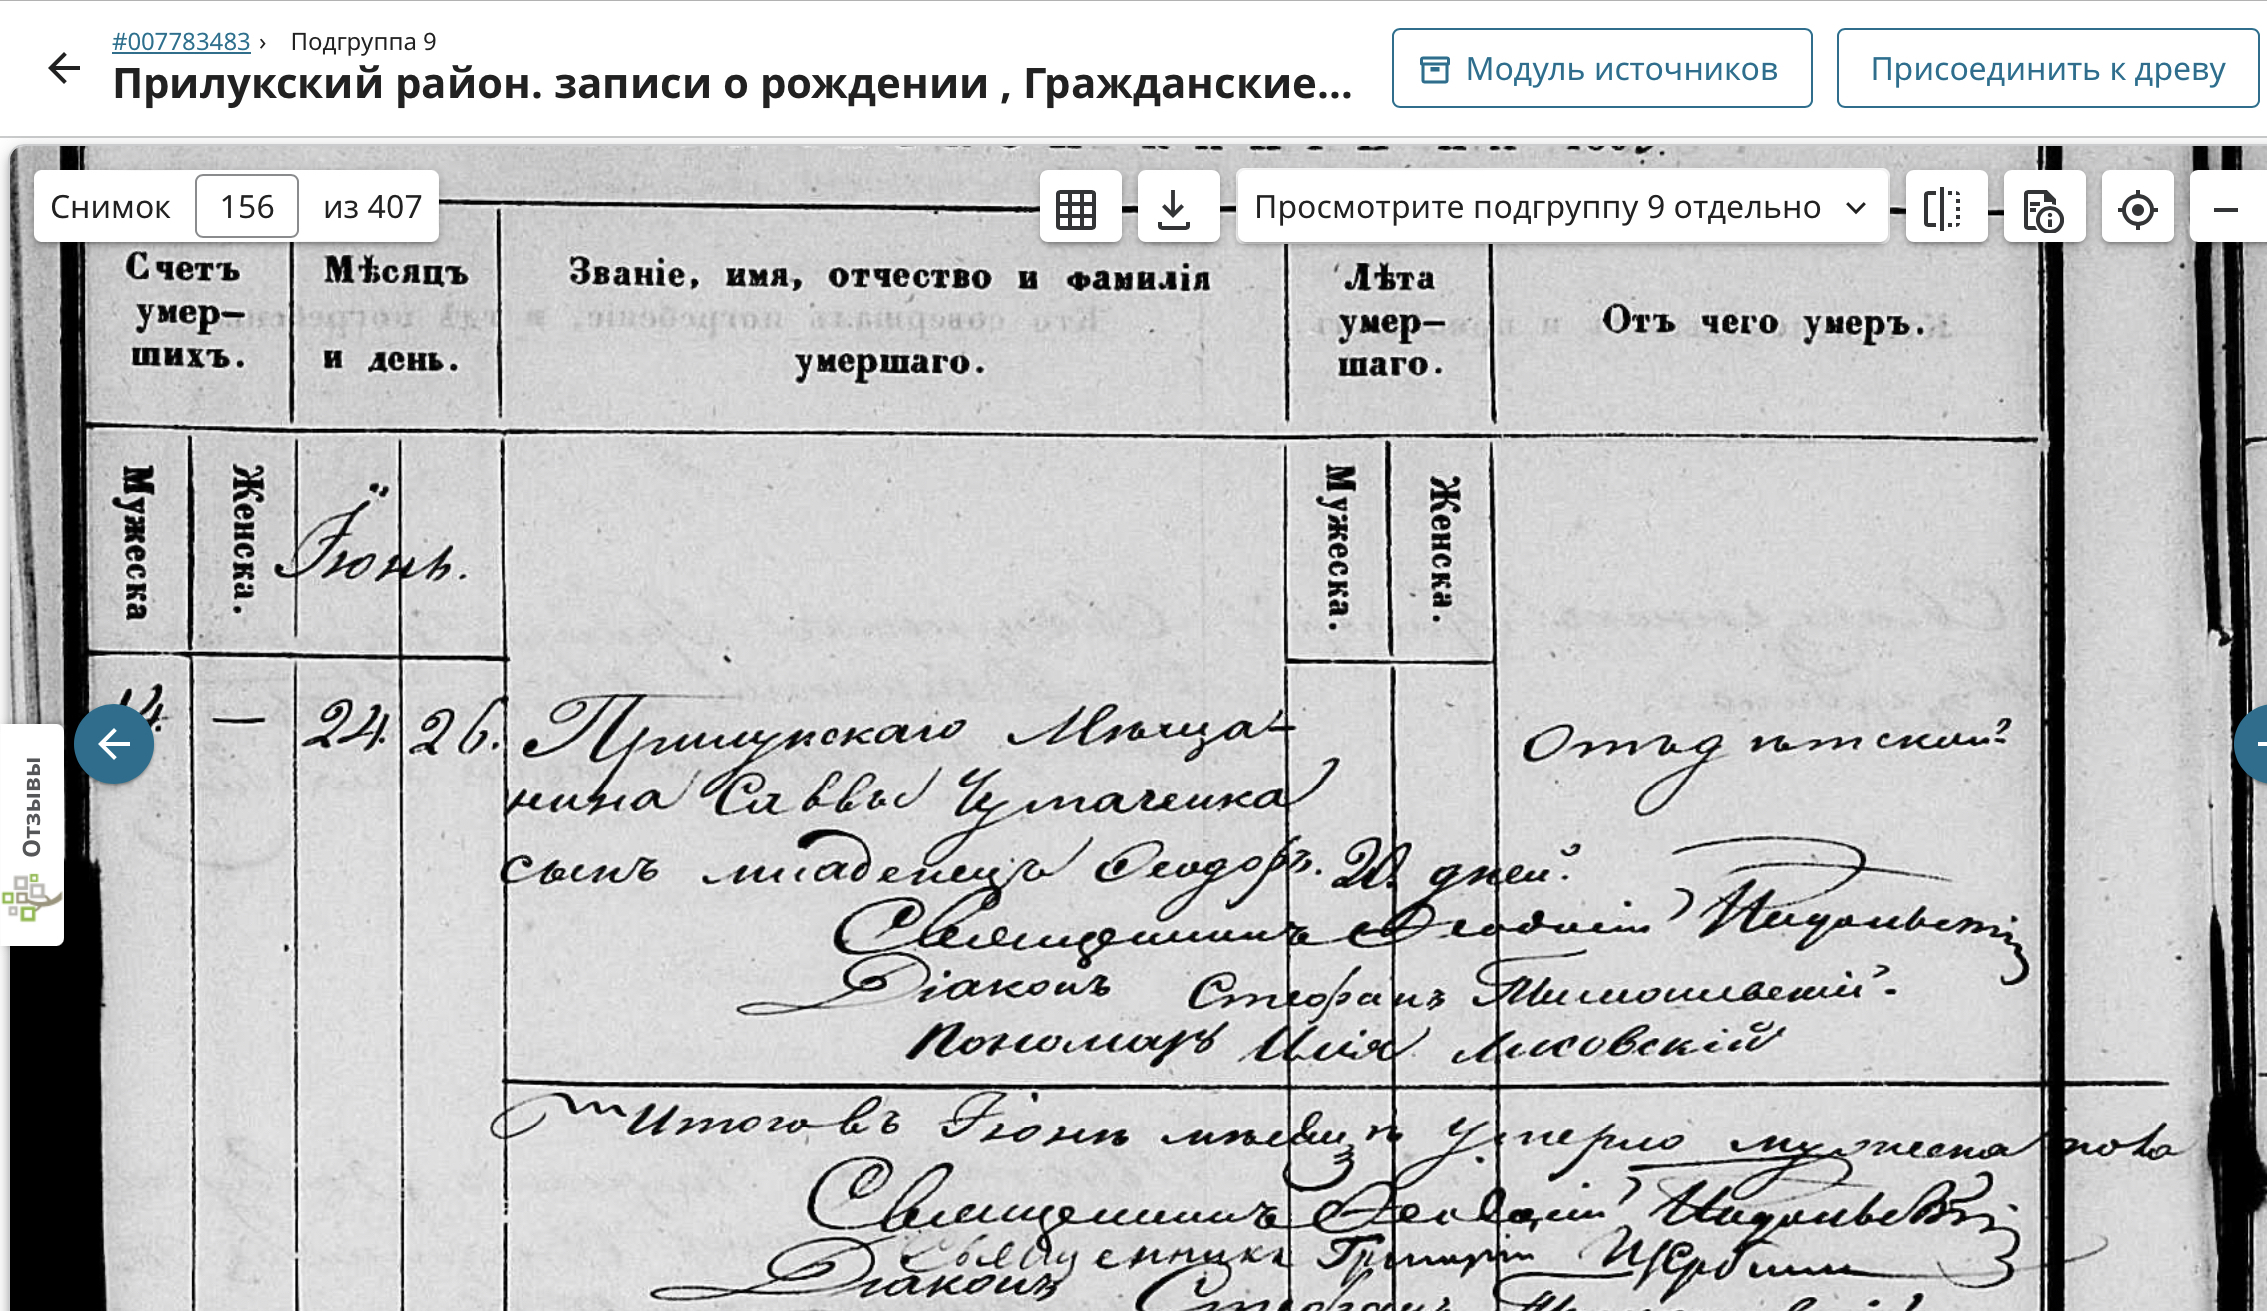 #007783483 › Подгруппа 9
Прилукский район. записи о рождении , Гражданские...
Модуль источников
Присоединить к древу
Снимок 156 из 407
Просмотрите подгруппу 9 отдельно
Счетъ умер-шихъ.
Мѣсяцъ и день.
Званіе, имя, отчество и фамилія
умершаго.
Лѣта умер-шаго.
Отъ чего умеръ.
Мужеска
Женска.
Іюнь.
Мужеска.
Женска.
14. — 24. 26. Прилукскаго Мѣща-
нина Саввы Чумаченка
сынъ младенецъ Ѳеодоръ. 20. дней.
Отъ дѣтской
Священникъ Ѳеодосій
Діаконъ Стефанъ
Пономарь Илія Лисовскій
Итого въ Іюнѣ мѣсяцѣ умерло мужеска пола
Священникъ Ѳеодосій
Священникъ Григорій Щербина
Діаконъ Стефанъ
Отзывы